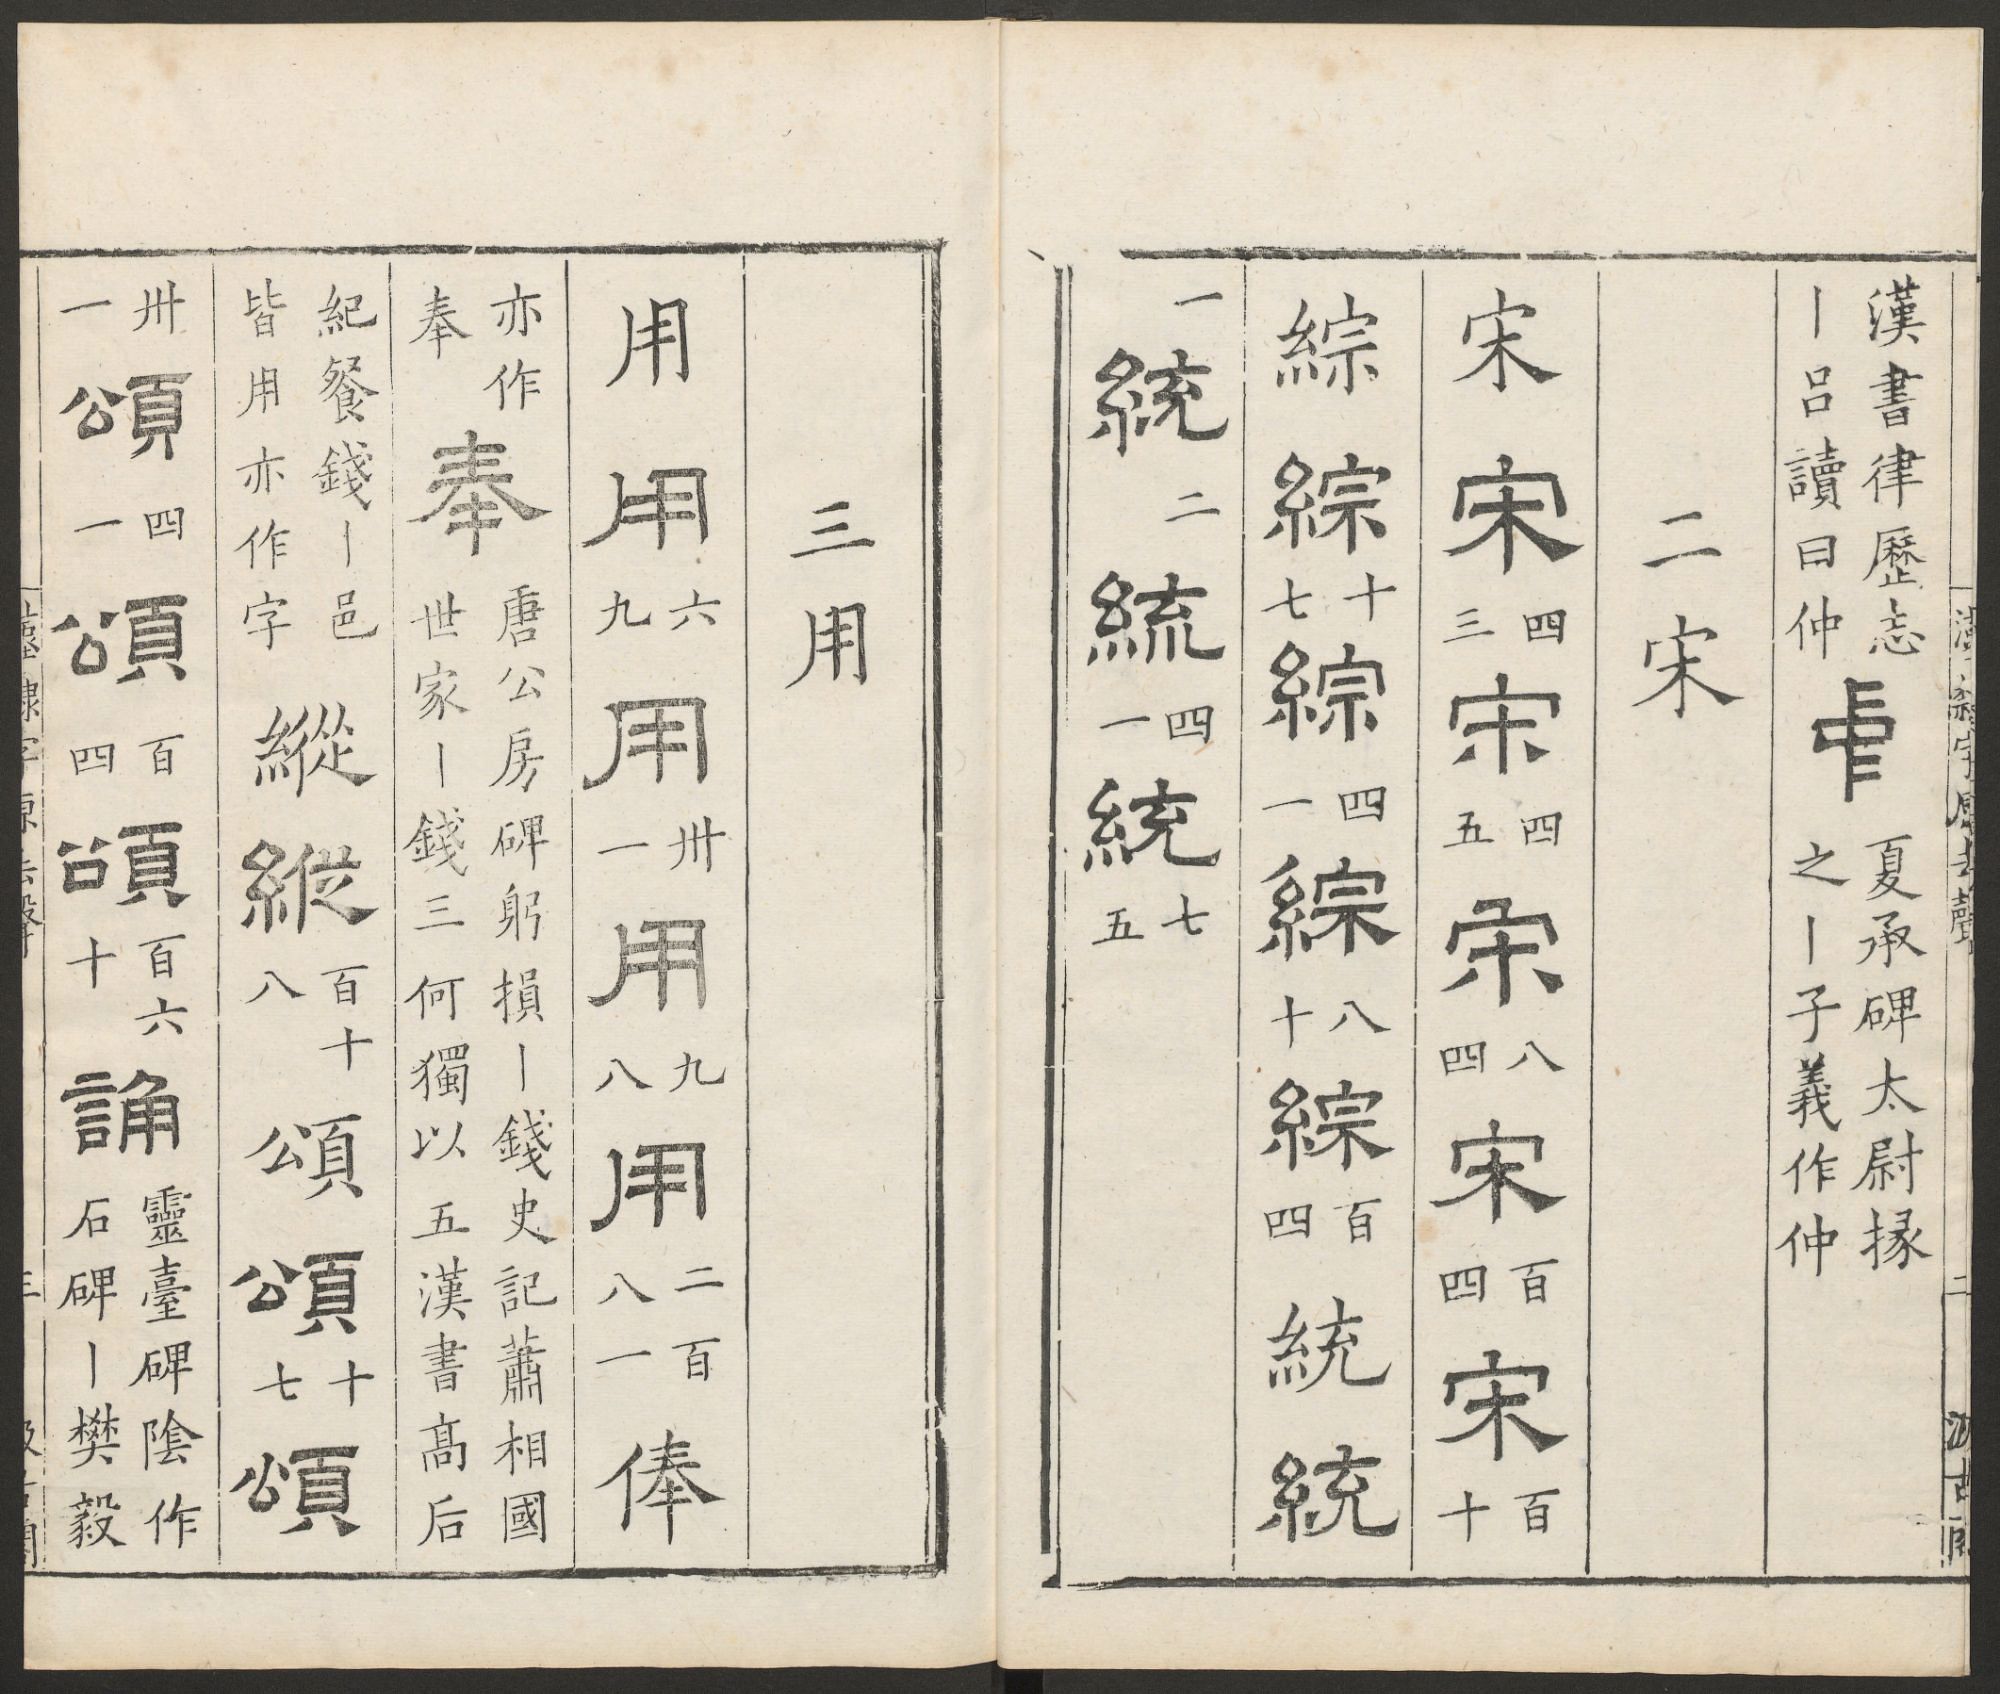 漢隸字原去聲 二 汲古閣
漢書律歷志丨呂讀曰仲 夏承碑太尉掾之丨子義作仲
二宋
宋 宋 四三 宋 四五 宋 八四 宋 百四 宋 百十
綜 綜 十七 綜 四一 綜 八十 綜 百四 統 統
一 統 二 統 四一 統 七五
三用
用 用 六九 用 卅一 用 九八 用 二百八一 俸
亦作奉 奉 唐公房碑躬損丨錢史記蕭相國世家丨錢三何獨以五漢書高后
紀餐錢丨邑皆用亦作字 縱 縱 百十八 頌 頌 十七 頌
卅一 頌 四一 頌 百四 頌 百六十 誦 靈臺碑陰作石碑丨樊毅
漢隸字原去聲 三 汲古閣